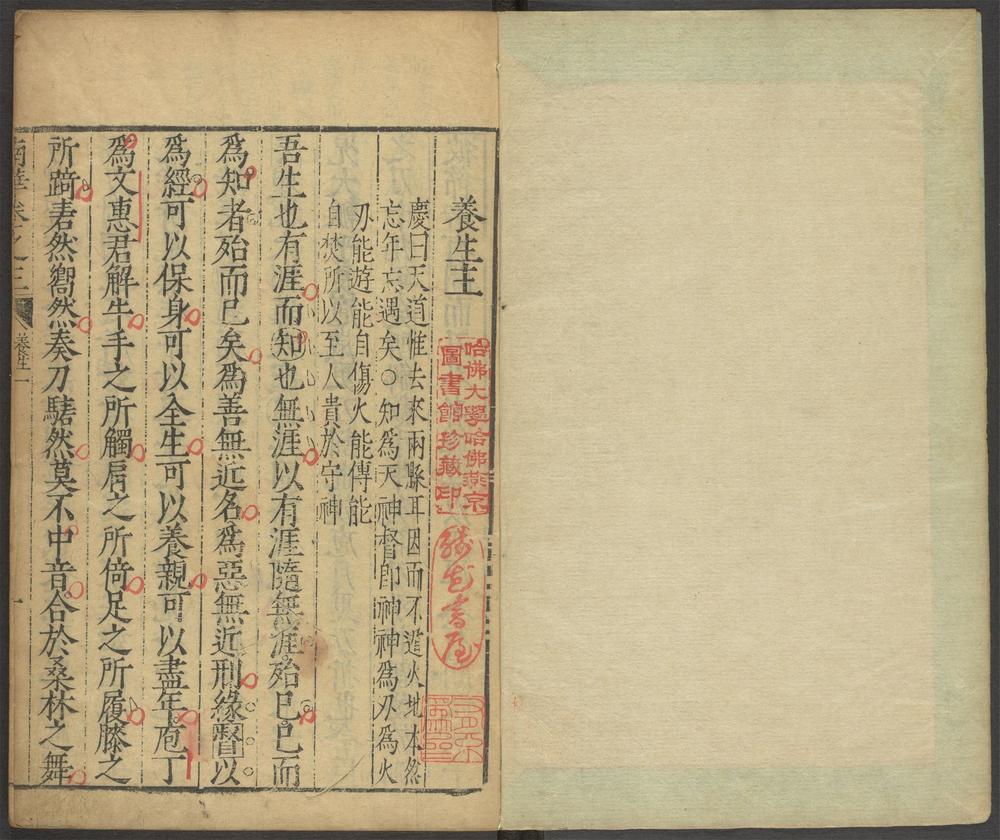 養生主
慶曰天道惟去來兩縣耳因而不遁火地本然
忘年忘遇矣○知為天神督即神神為刃為火
刃能遊能自傷火能傳能
自焚所以至人貴於守神
吾生也有涯而知也無涯以有涯隨無涯殆已已而
為知者殆而已矣為善無近名為惡無近刑緣督以
為經可以保身可以全生可以養親可以盡年庖丁
為文惠君解牛手之所觸肩之所倚足之所履膝之
所踦砉然嚮然奏刀騞然莫不中音合於桑林之舞
南華卷之三
養生一
一
哈佛大學哈佛燕京
圖書館珍藏印
書屋